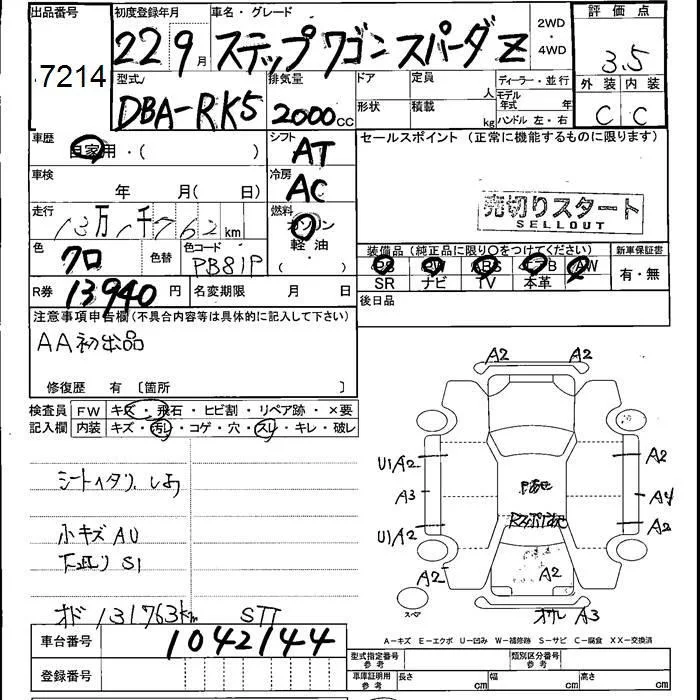 出品番号 初度登録年月 車名・グレード 2WD・4WD 評価点
7214 22 9月 ステップワゴン スパーダ Z 3.5
型式 排気量 ドア 定員 人 ディーラー・並行 外装 内装
DBA-RK5 2000cc 形状 積載 kg モデル年式 年 ハンドル 左・右 C C
車歴 自家用・( ) シフト AT セールスポイント(正常に機能するものに限ります)
車検 年 月( 日) 冷房 AC
売切りスタート
SELLOUT
走行 13万1千762km 燃料 ガソリン 軽油・( )
色 クロ 色替 色コード PB81P
装備品(純正品に限り○をつけてください) 新車保証書
PS PW ABS エアB AW 有・無
SR ナビ TV 本革
R券 13940円 名変期限 月 日 後日品
注意事項申告欄(不具合内容等は具体的に記入して下さい)
AA初出品
修復歴 有 〔箇所 〕
検査員 FW キズ・飛石・ヒビ割・リペア跡・×要
記入欄 内装 キズ・汚レ・コゲ・穴・スレ・キレ・破レ
シートヘタリ、しみ
小キズ AU
下廻り S1
オド 131763km STT
A2 A2
U1/A2 A2
A3 A4
U1/A2 A2
A2 A2
スペア A3
A-キズ E-エクボ U-凹み W-補修跡 S-サビ C-腐食 XX-交換済
車台番号 1042144
登録番号
型式指定番号 参考 類別区分番号 参考
車庫証明用 参考 長さ cm 幅 cm 高さ cm